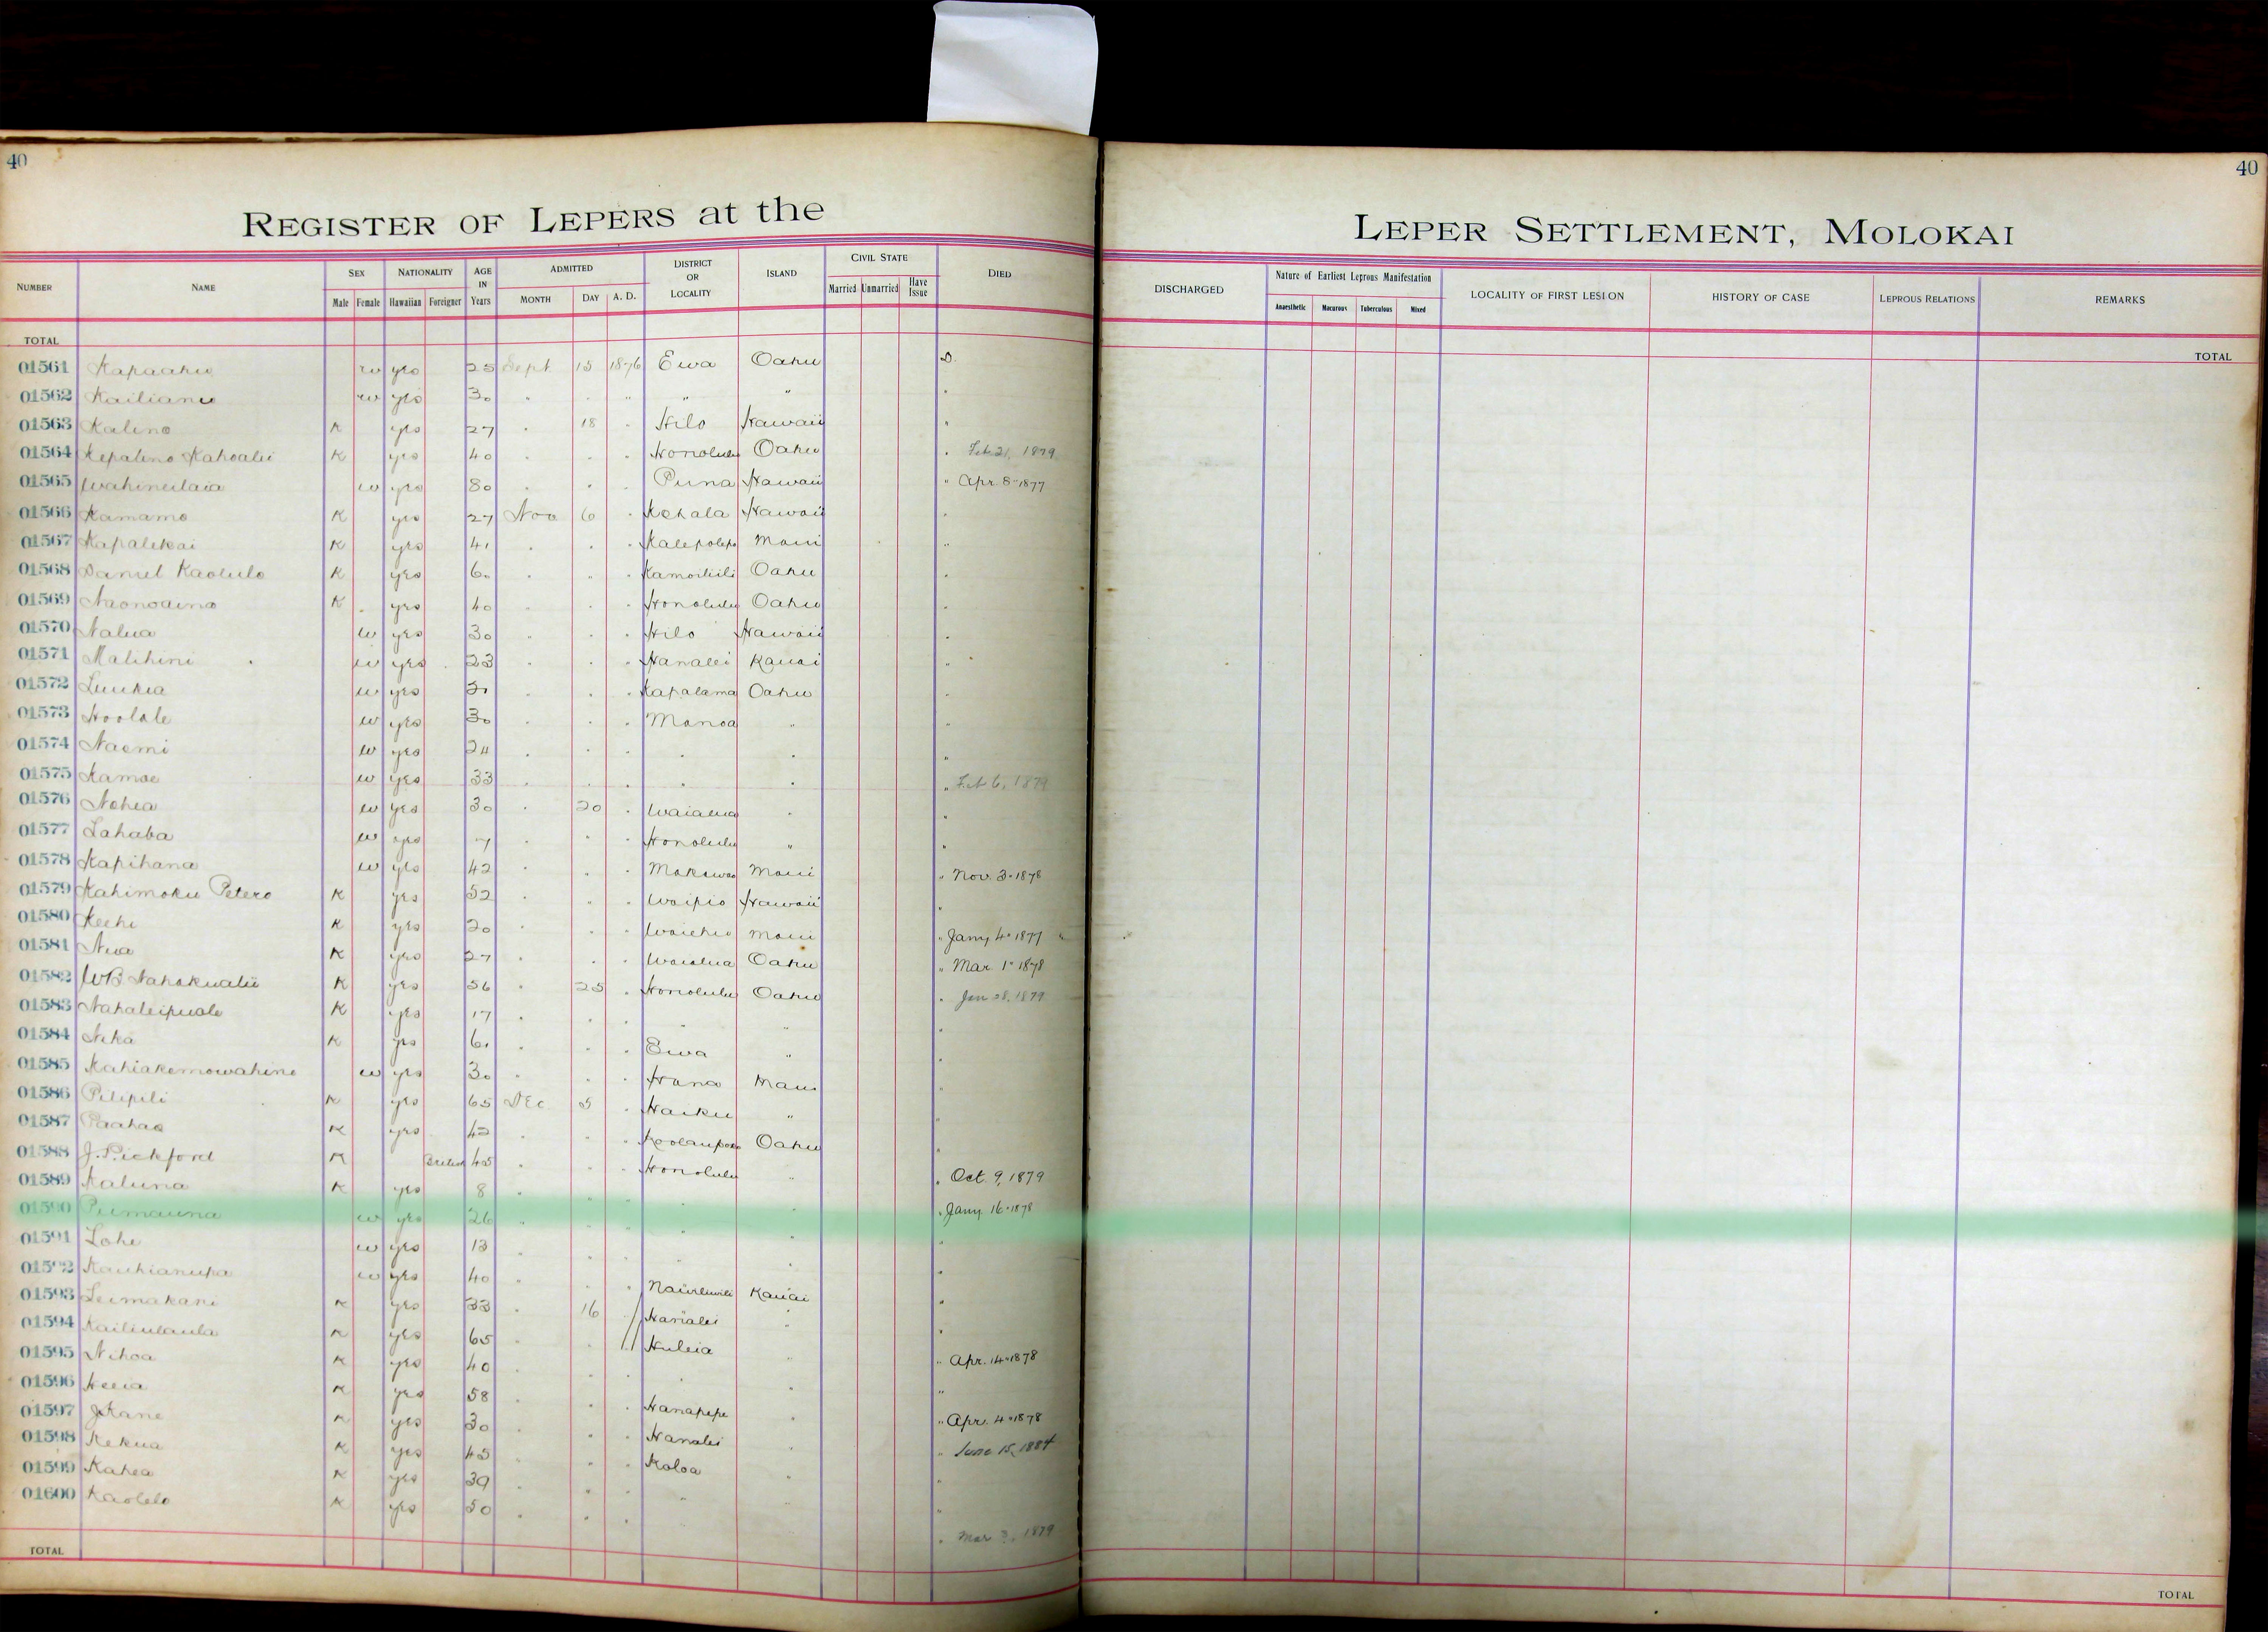 40
40
REGISTER OF LEPERS at the
LEPER SETTLEMENT, MOLOKAI
NUMBER NAME SEX NATIONALITY AGE IN Years ADMITTED DISTRICT OR LOCALITY ISLAND CIVIL STATE DIED
Male Female Hawaiian Foreigner MONTH DAY A. D. Married Unmarried Have Issue
DISCHARGED Nature of Earliest Leprous Manifestation LOCALITY OF FIRST LESION HISTORY OF CASE LEPROUS RELATIONS REMARKS
Anaesthetic Macurous Tuberculous Mixed
TOTAL
TOTAL
01561 Kapaahu w yes 25 Sept 15 1876 Ewa Oahu D.
01562 Kailianu w yes 30 " " " " " "
01563 Kalino K yes 27 " 18 " Hilo Hawaii "
01564 Kepalino Kahoalii K yes 40 " " " Honolulu Oahu " Feb 21, 1879
01565 Wahineilaia w yes 80 " " " Puna Hawaii " Apr. 8" 1877
01566 Kamamo K yes 27 Nov 6 " Kohala Hawaii "
01567 Kapalekai K yes 41 " " " Kalepolepo Maui "
01568 Daniel Kaolulo K yes 60 " " " Kamoiliili Oahu "
01569 Naonoaina K yes 40 " " " Honolulu Oahu "
01570 Nalua w yes 30 " " " Hilo Hawaii "
01571 Malihini w yes 23 " " " Hanalei Kauai "
01572 Luukia w yes 51 " " " Kapalama Oahu "
01573 Hoolale w yes 30 " " " Manoa " "
01574 Naomi w yes 24 " " " " " "
01575 Kamae w yes 33 " " " " " " Feb 6, 1879
01576 Nohea w yes 30 " 20 " Waialua " "
01577 Lahaba w yes 7 " " " Honolulu " "
01578 Kapihana w yes 42 " " " Makawao Maui " Nov. 3" 1878
01579 Kahimoku Petero K yes 52 " " " Waipio Hawaii "
01580 Keehi K yes 20 " " " Waiehu Maui " Jany 4" 1877 "
01581 Nua K yes 27 " " " Waialua Oahu " Mar. 1" 1878
01582 WB Nahokualii K yes 56 " 25 " Honolulu Oahu " Jan 28, 1879
01583 Nahaleipuole K yes 17 " " " " " "
01584 Nika K yes 61 " " " Ewa " "
01585 Kahiakemowahine w yes 30 " " " Hana Maui "
01586 Pilipili K yes 65 Dec 5 " Haiku " "
01587 Paahao K yes 42 " " " Koolaupoko Oahu "
01588 J. Pickford K British 45 " " " Honolulu " " Oct. 9, 1879
01589 Kaluna K yes 8 " " " " " " Jany. 16" 1878
01590 Puimauna w yes 26 " " " " " "
01591 Lohe w yes 13 " " " " " "
01592 Kauhianupa w yes 40 " " " Nawiliwili Kauai "
01593 Leimakani K yes 33 " 16 " Hanalei " "
01594 Kailiulaula K yes 65 " " " Huleia " " Apr. 14" 1878
01595 Nihoa K yes 40 " " " " " "
01596 Heeia K yes 58 " " " Hanapepe " " Apr. 4" 1878
01597 J Kane K yes 30 " " " Hanalei " " June 15, 1884
01598 Kekua K yes 45 " " " Koloa " "
01599 Kahea K yes 39 " " " " " "
01600 Kaolelo K yes 50 " " " " Mar 3, 1879
TOTAL
TOTAL